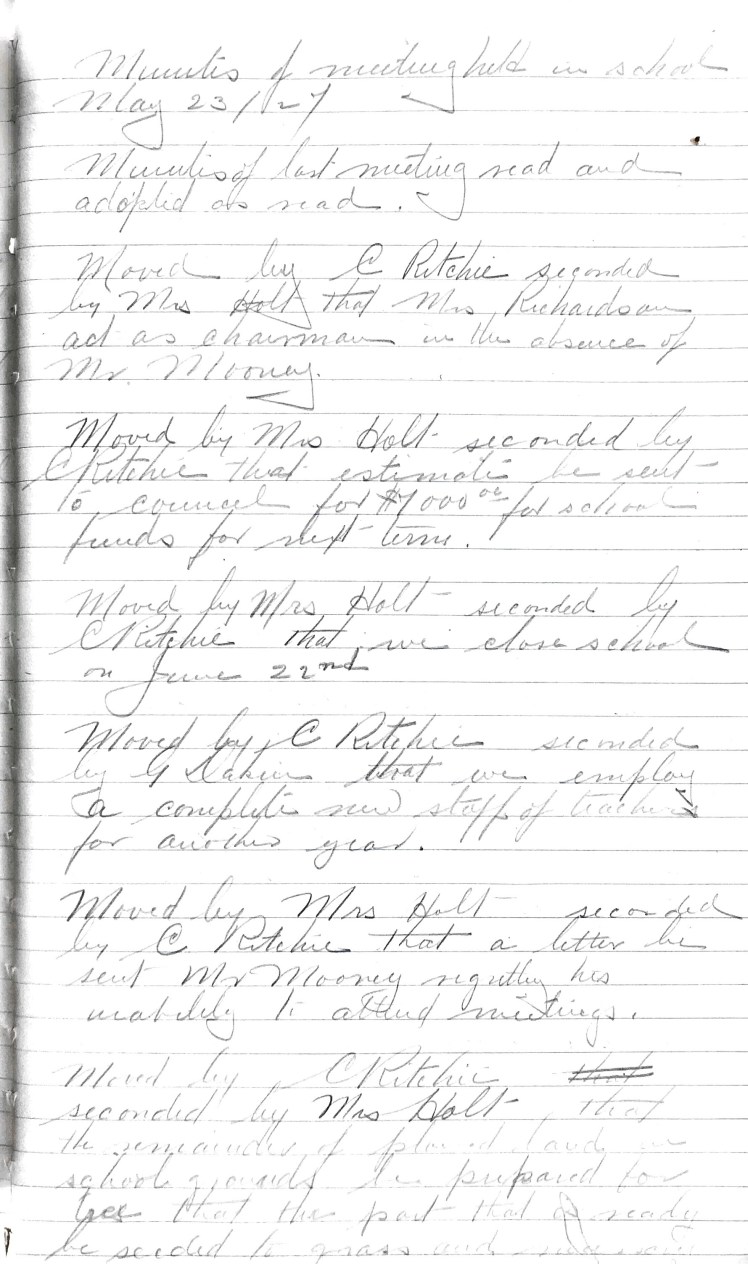 Minutes of meeting held in school
May 23/27
Minutes of last meeting read and
adopted as read.
Moved by C Ritchie seconded
by Mrs Holt that Mrs Richardson
act as chairman in the absence of
Mr. Mooney.
Moved by Mrs Holt seconded by
C Ritchie that estimate be sent
to council for $7000 00 for school
funds for next term.
Moved by Mrs Holt seconded by
C Ritchie that we close school
on June 22nd
Moved by C Ritchie seconded
by G Dakin that we employ
a complete new staff of teachers
for another year.
Moved by Mrs Holt seconded
by C Ritchie that a letter be
sent Mr Mooney his
inability to attend meetings.
Moved by C Ritchie that
seconded by Mrs Holt that
the remainder of plowed land in
school grounds be prepared for
trees that the part that is ready
be seeded to grass and